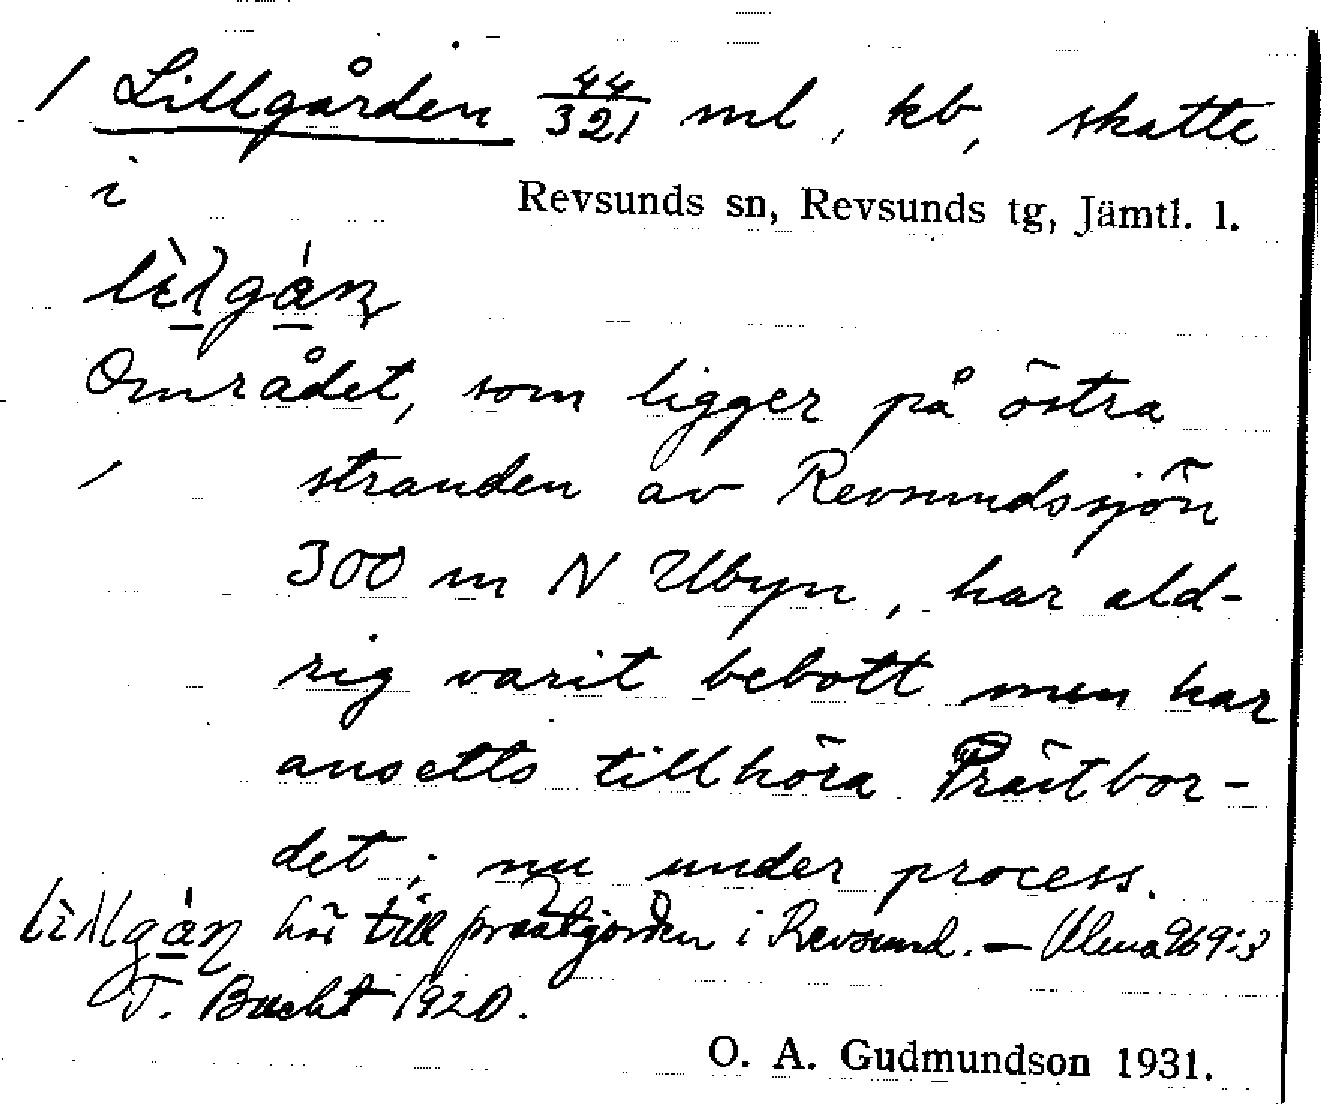 / Lillgården 44/321 ml, kb, skatte
i Revsunds sn, Revsunds tg, Jämtl. l.
Området, som ligger på östra
stranden av Revsundssjön
300 m N Ubyn, har ald-
rig varit bebott men har
ansetts tillhöra Prästbor-
det; nu under process.
hör till prästgården i Revsund. — Ulma 969:3
T. Bucht 1920.
O. A. Gudmundson 1931.